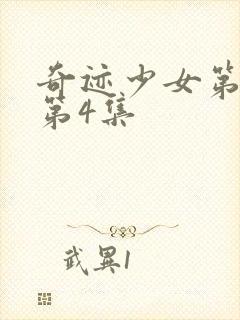 奇迹少女第
第4集
武異1